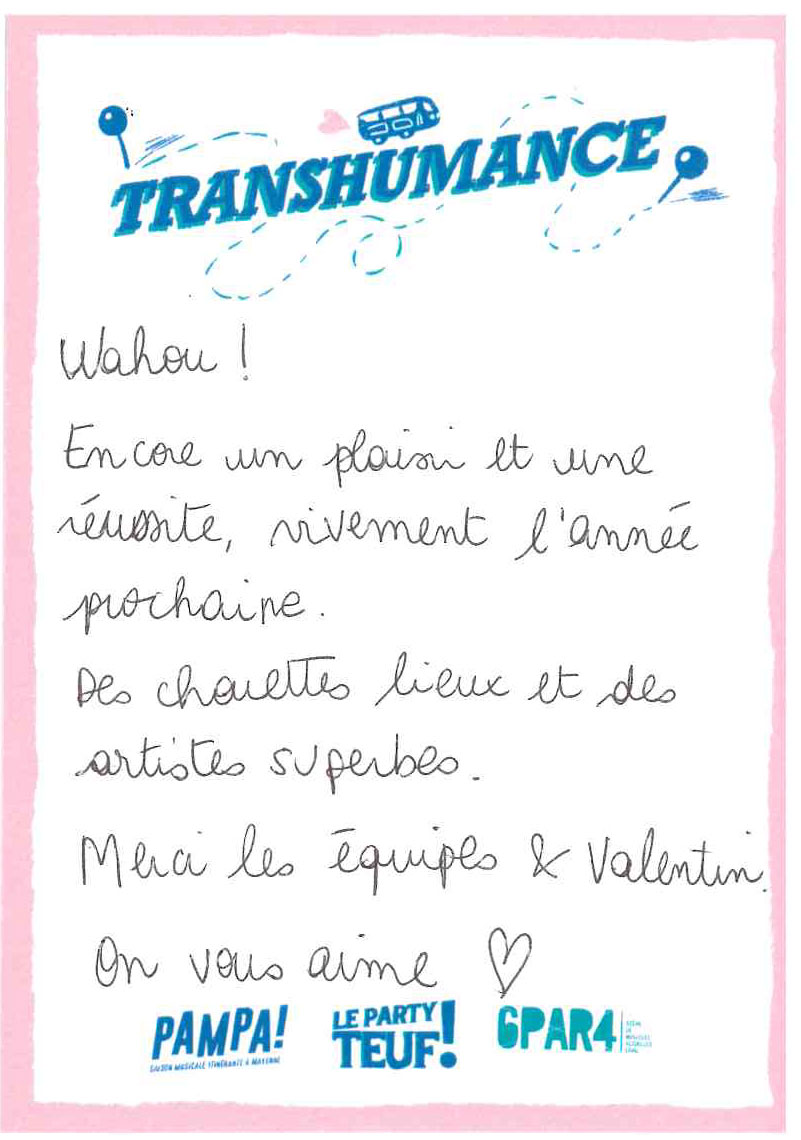 TRANSHUMANCE
Wahou !
Encore un plaisir et une
réussite, vivement l'année
prochaine.
Des chouettes lieux et des
artistes superbes.
Merci les équipes & Valentin.
On vous aime ♡
PAMPA!
SAISON MUSICALE ITINÉRANTE À MAYENNE
LE PARTY
TEUF!
6PAR4
SCÈNE
DE
MUSIQUES
ACTUELLES
LAVAL